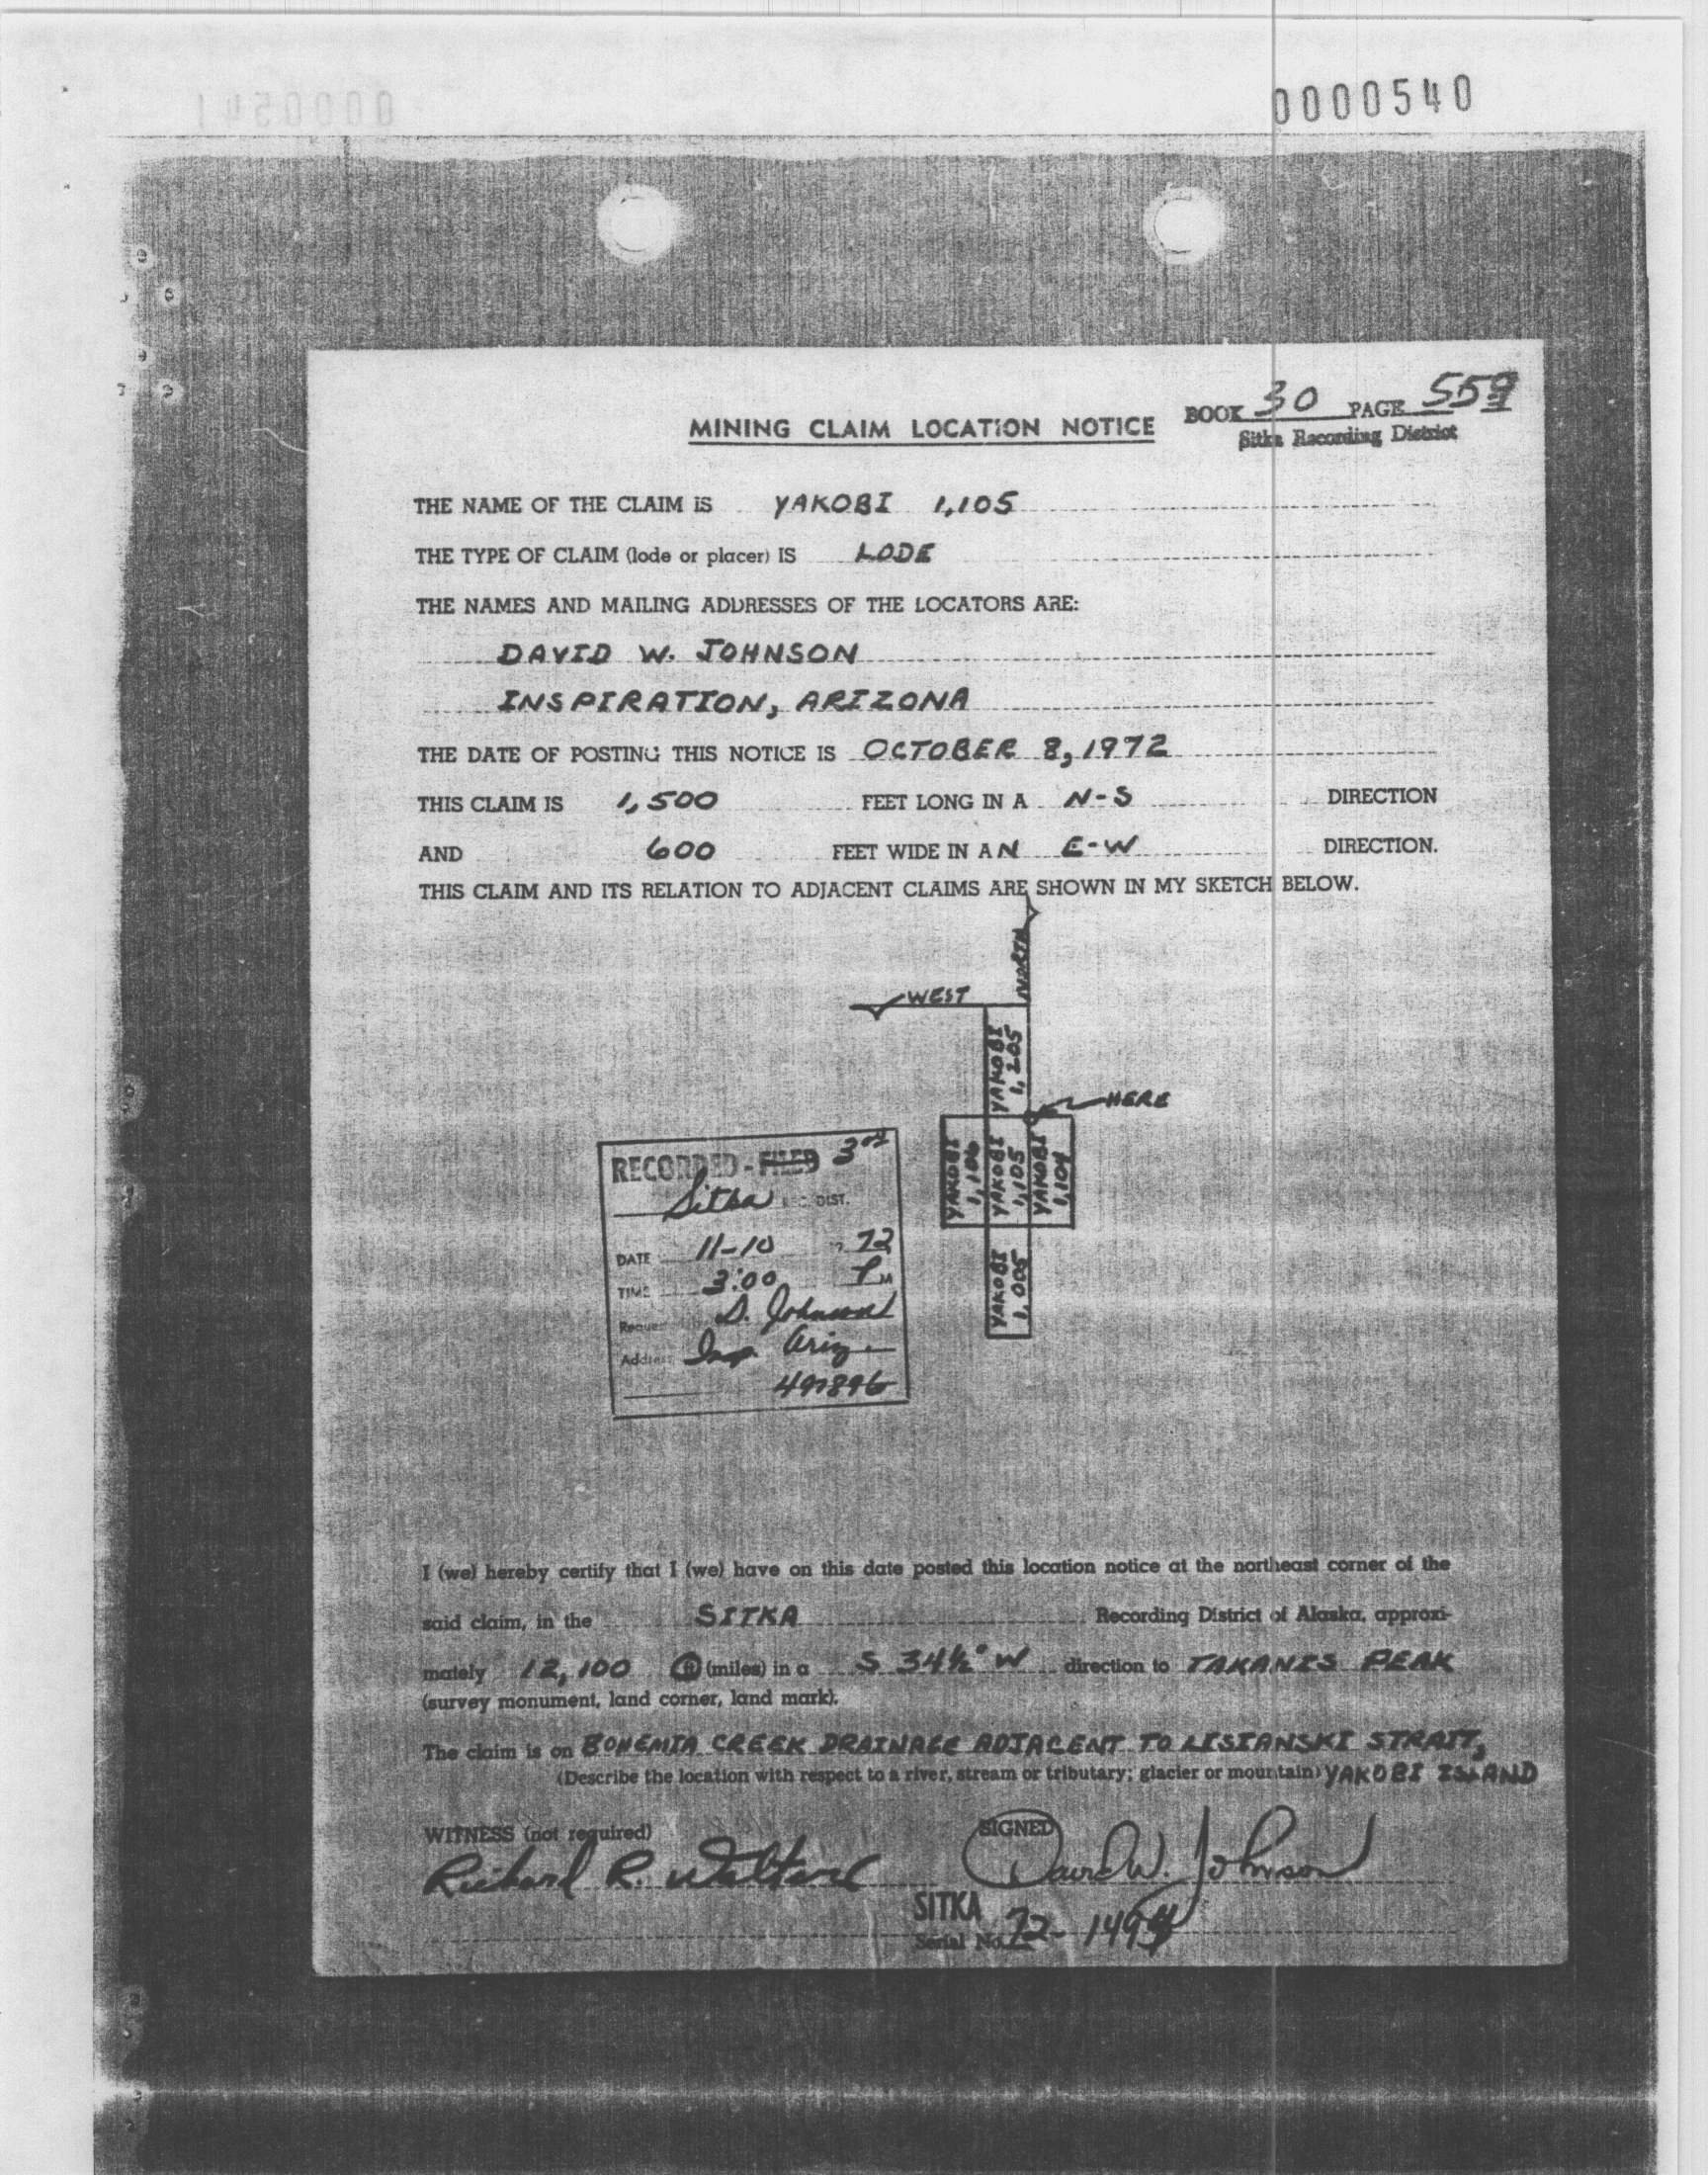 0000540
BOOK 30 PAGE 559
MINING CLAIM LOCATION NOTICE
Sitka Recording District
THE NAME OF THE CLAIM IS YAKOBI 1,105
THE TYPE OF CLAIM (lode or placer) IS LODE
THE NAMES AND MAILING ADDRESSES OF THE LOCATORS ARE:
DAVID W. JOHNSON
INSPIRATION, ARIZONA
THE DATE OF POSTING THIS NOTICE IS OCTOBER 8, 1972
THIS CLAIM IS 1,500 FEET LONG IN A N-S DIRECTION
AND 600 FEET WIDE IN AN E-W DIRECTION.
THIS CLAIM AND ITS RELATION TO ADJACENT CLAIMS ARE SHOWN IN MY SKETCH BELOW.
NORTH
WEST
YAKOBI 1,205
HERE
YAKOBI 1,106
YAKOBI 1,105
YAKOBI 1,104
YAKOBI 1,005
RECORDED - FILED
Sitka DIST.
DATE 11-10 72
TIME 3:00 P M
D. Johnson
Address Insp. Ariz
I (we) hereby certify that I (we) have on this date posted this location notice at the northeast corner of the
said claim, in the SITKA Recording District of Alaska, approxi-
mately 12,100 ft (miles) in a S 34½° W direction to TAKANIS PEAK
(survey monument, land corner, land mark).
The claim is on BOHEMIA CREEK DRAINAGE ADJACENT TO LISIANSKI STRAIT,
(Describe the location with respect to a river, stream or tributary; glacier or mountain) YAKOBI ISLAND
WITNESS (not required) SIGNED
Richard R. David W. Johnson
SITKA
Serial No. 72-1494